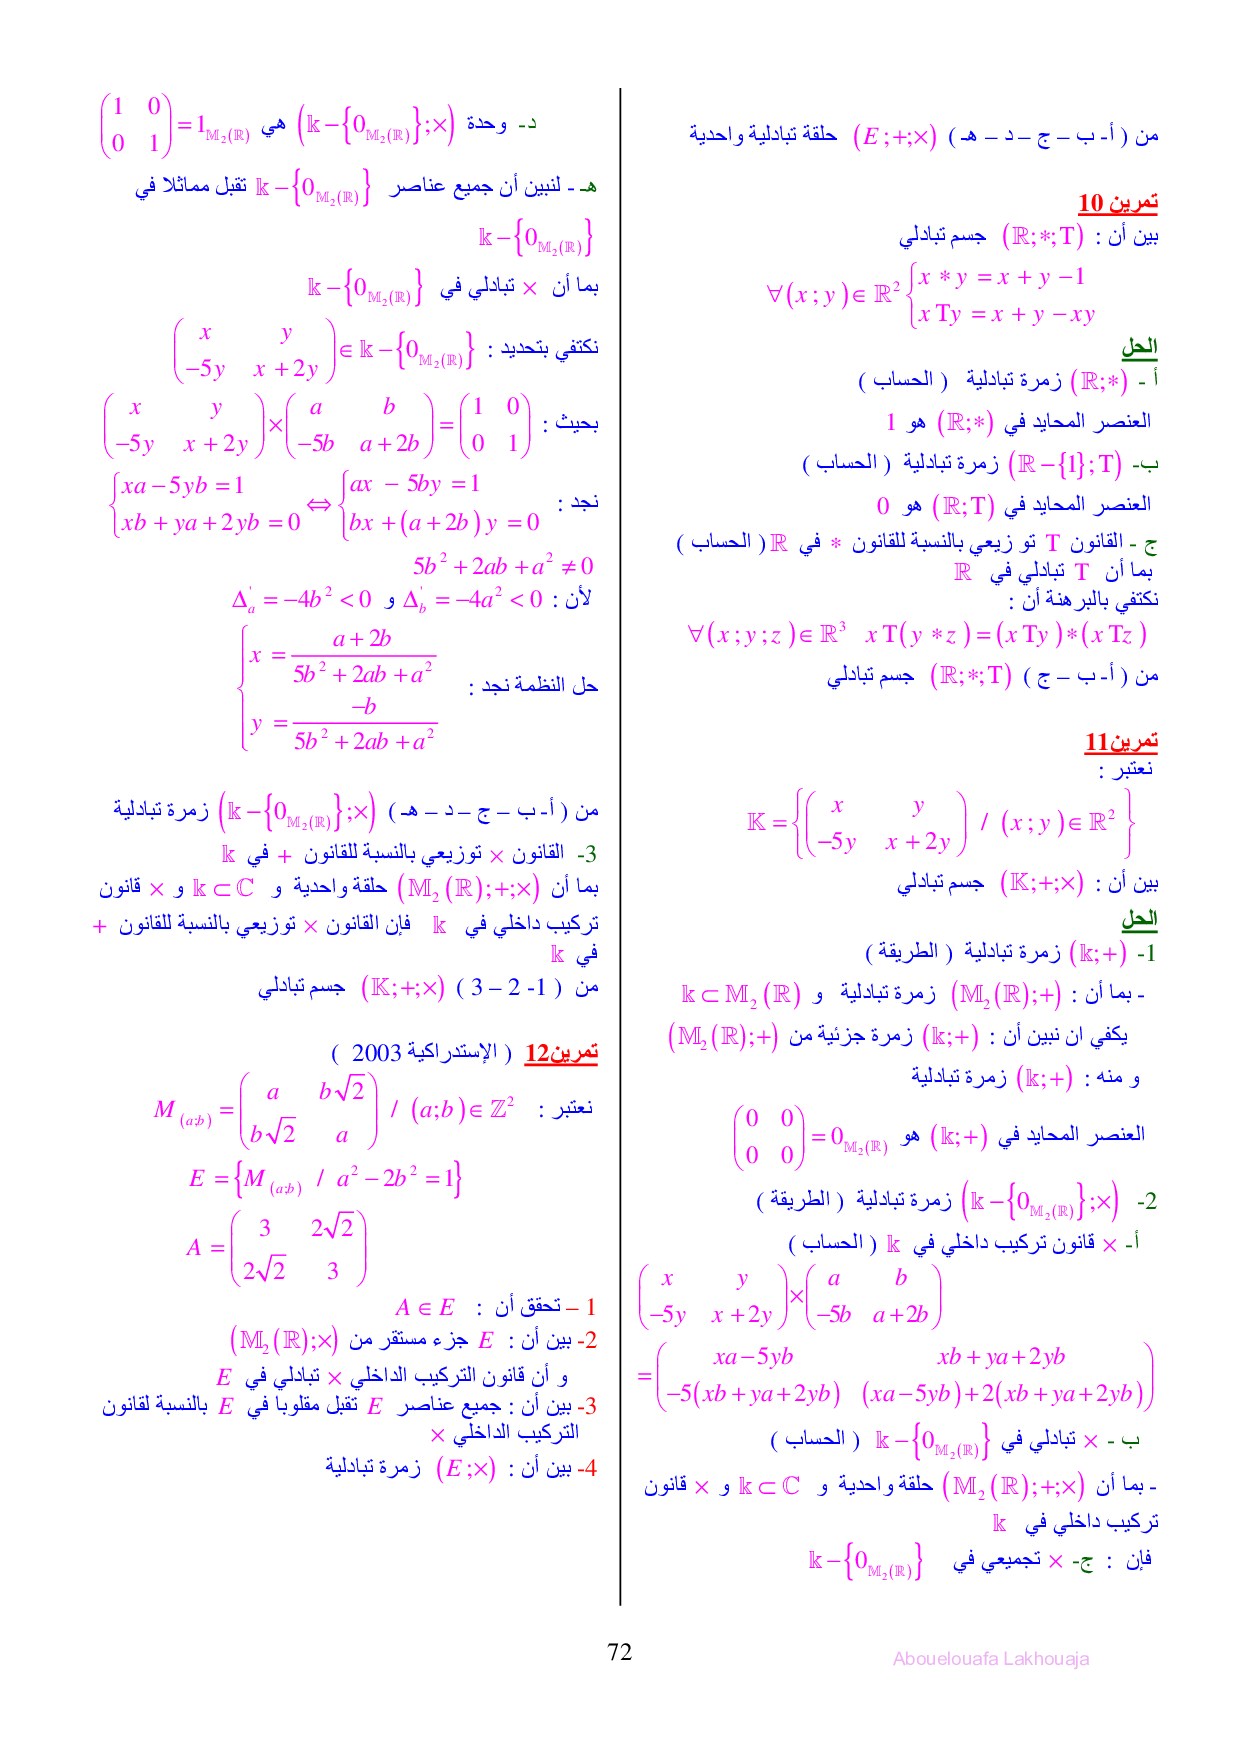 من ( أ- ب – ج – د – هـ ) (E;+;×) حلقة تبادلية واحدية
تمرين 10
بين أن : (ℝ;*;T) جسم تبادلي
∀(x;y)∈ℝ² { x*y = x+y−1
xTy = x+y−xy
الحل
أ - (ℝ;*) زمرة تبادلية ( الحساب )
العنصر المحايد في (ℝ;*) هو 1
ب- (ℝ−{1};T) زمرة تبادلية ( الحساب )
العنصر المحايد في (ℝ;T) هو 0
ج - القانون T تو زيعي بالنسبة للقانون * في ℝ ( الحساب )
بما أن T تبادلي في ℝ
نكتفي بالبرهنة أن :
∀(x;y;z)∈ℝ³ xT(y*z)=(xTy)*(xTz)
من ( أ- ب – ج ) (ℝ;*;T) جسم تبادلي
تمرين11
نعتبر :
𝕂 = { ( x y ; −5y x+2y ) / (x;y)∈ℝ² }
بين أن : (𝕂;+;×) جسم تبادلي
الحل
1- (𝕜;+) زمرة تبادلية ( الطريقة )
- بما أن : (𝕄₂(ℝ);+) زمرة تبادلية و 𝕜⊂𝕄₂(ℝ)
يكفي ان نبين أن : (𝕜;+) زمرة جزئية من (𝕄₂(ℝ);+)
و منه : (𝕜;+) زمرة تبادلية
العنصر المحايد في (𝕜;+) هو ( 0 0 ; 0 0 ) = 0_{𝕄₂(ℝ)}
2- (𝕜−{0_{𝕄₂(ℝ)}};×) زمرة تبادلية ( الطريقة )
أ- × قانون تركيب داخلي في 𝕜 ( الحساب )
( x y ; −5y x+2y ) × ( a b ; −5b a+2b )
= ( xa−5yb xb+ya+2yb ; −5(xb+ya+2yb) (xa−5yb)+2(xb+ya+2yb) )
ب - × تبادلي في 𝕜−{0_{𝕄₂(ℝ)}} ( الحساب )
- بما أن (𝕄₂(ℝ);+;×) حلقة واحدية و 𝕜⊂ℂ و × قانون
تركيب داخلي في 𝕜
فإن : ج- × تجميعي في 𝕜−{0_{𝕄₂(ℝ)}}
د- وحدة (𝕜−{0_{𝕄₂(ℝ)}};×) هي ( 1 0 ; 0 1 ) = 1_{𝕄₂(ℝ)}
هـ - لنبين أن جميع عناصر 𝕜−{0_{𝕄₂(ℝ)}} تقبل مماثلا في
𝕜−{0_{𝕄₂(ℝ)}}
بما أن × تبادلي في 𝕜−{0_{𝕄₂(ℝ)}}
نكتفي بتحديد : ( x y ; −5y x+2y ) ∈ 𝕜−{0_{𝕄₂(ℝ)}}
بحيث : ( x y ; −5y x+2y ) × ( a b ; −5b a+2b ) = ( 1 0 ; 0 1 )
نجد : { xa−5yb=1 ; xb+ya+2yb=0 ⇔ { ax−5by=1 ; bx+(a+2b)y=0
5b²+2ab+a²≠0
لأن : Δ'_b = −4a² < 0 و Δ'_a = −4b² < 0
حل النظمة نجد : { x = (a+2b)/(5b²+2ab+a²)
y = −b/(5b²+2ab+a²)
من ( أ- ب – ج – د – هـ ) (𝕜−{0_{𝕄₂(ℝ)}};×) زمرة تبادلية
3- القانون × توزيعي بالنسبة للقانون + في 𝕜
بما أن (𝕄₂(ℝ);+;×) حلقة واحدية و 𝕜⊂ℂ و × قانون
تركيب داخلي في 𝕜 فإن القانون × توزيعي بالنسبة للقانون +
في 𝕜
من ( 1- 2 – 3 ) (𝕂;+;×) جسم تبادلي
تمرين12 ( الإستدراكية 2003 )
نعتبر : M_(a;b) = ( a b√2 ; b√2 a ) / (a;b)∈ℤ²
E = { M_(a;b) / a²−2b²=1 }
A = ( 3 2√2 ; 2√2 3 )
1 – تحقق أن : A∈E
2- بين أن : E جزء مستقر من (𝕄₂(ℝ);×)
و أن قانون التركيب الداخلي × تبادلي في E
3- بين أن : جميع عناصر E تقبل مقلوبا في E بالنسبة لقانون
التركيب الداخلي ×
4- بين أن : (E;×) زمرة تبادلية
72
Abouelouafa Lakhouaja